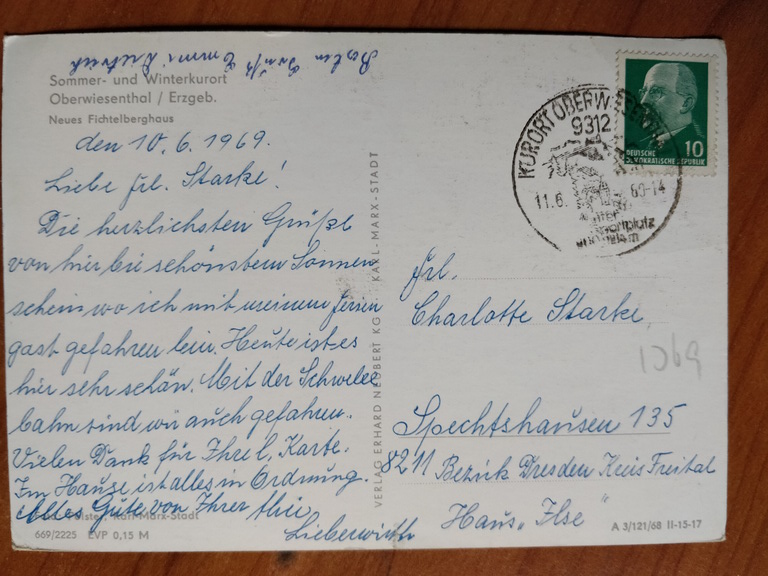 Sommer- und Winterkurort
Oberwiesenthal / Erzgeb.
Neues Fichtelberghaus
den 10.6.1969.
Liebe Frl. Starke!
Die herzlichsten Grüße
von hier bei schönstem Sonnen
schein wo ich mit meinem Ferien
gast gefahren bin. Heute ist es
hier sehr schön. Mit der Schwebe
bahn sind wir auch gefahren.
Vielen Dank für Ihre l. Karte.
Im Hause ist alles in Ordnung.
Alles Gute von Ihrer
Lieberwirth
Karl-Marx-Stadt
669/2225 EVP 0,15 M
VERLAG ERHARD NEUBERT KG KARL-MARX-STADT
KURORT OBERWIESENTHAL
9312
11.6. 69-14
DEUTSCHE
DEMOKRATISCHE REPUBLIK
10
Frl.
Charlotte Starke
1969
Spechtshausen 135
8211 Bezirk Dresden Kreis Freital
Haus „Ilse“
A 3/121/68 II-15-17